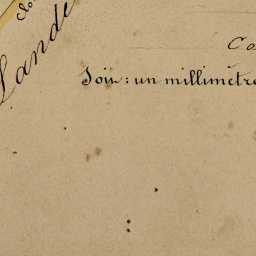 Lande
Soit : un millimètre